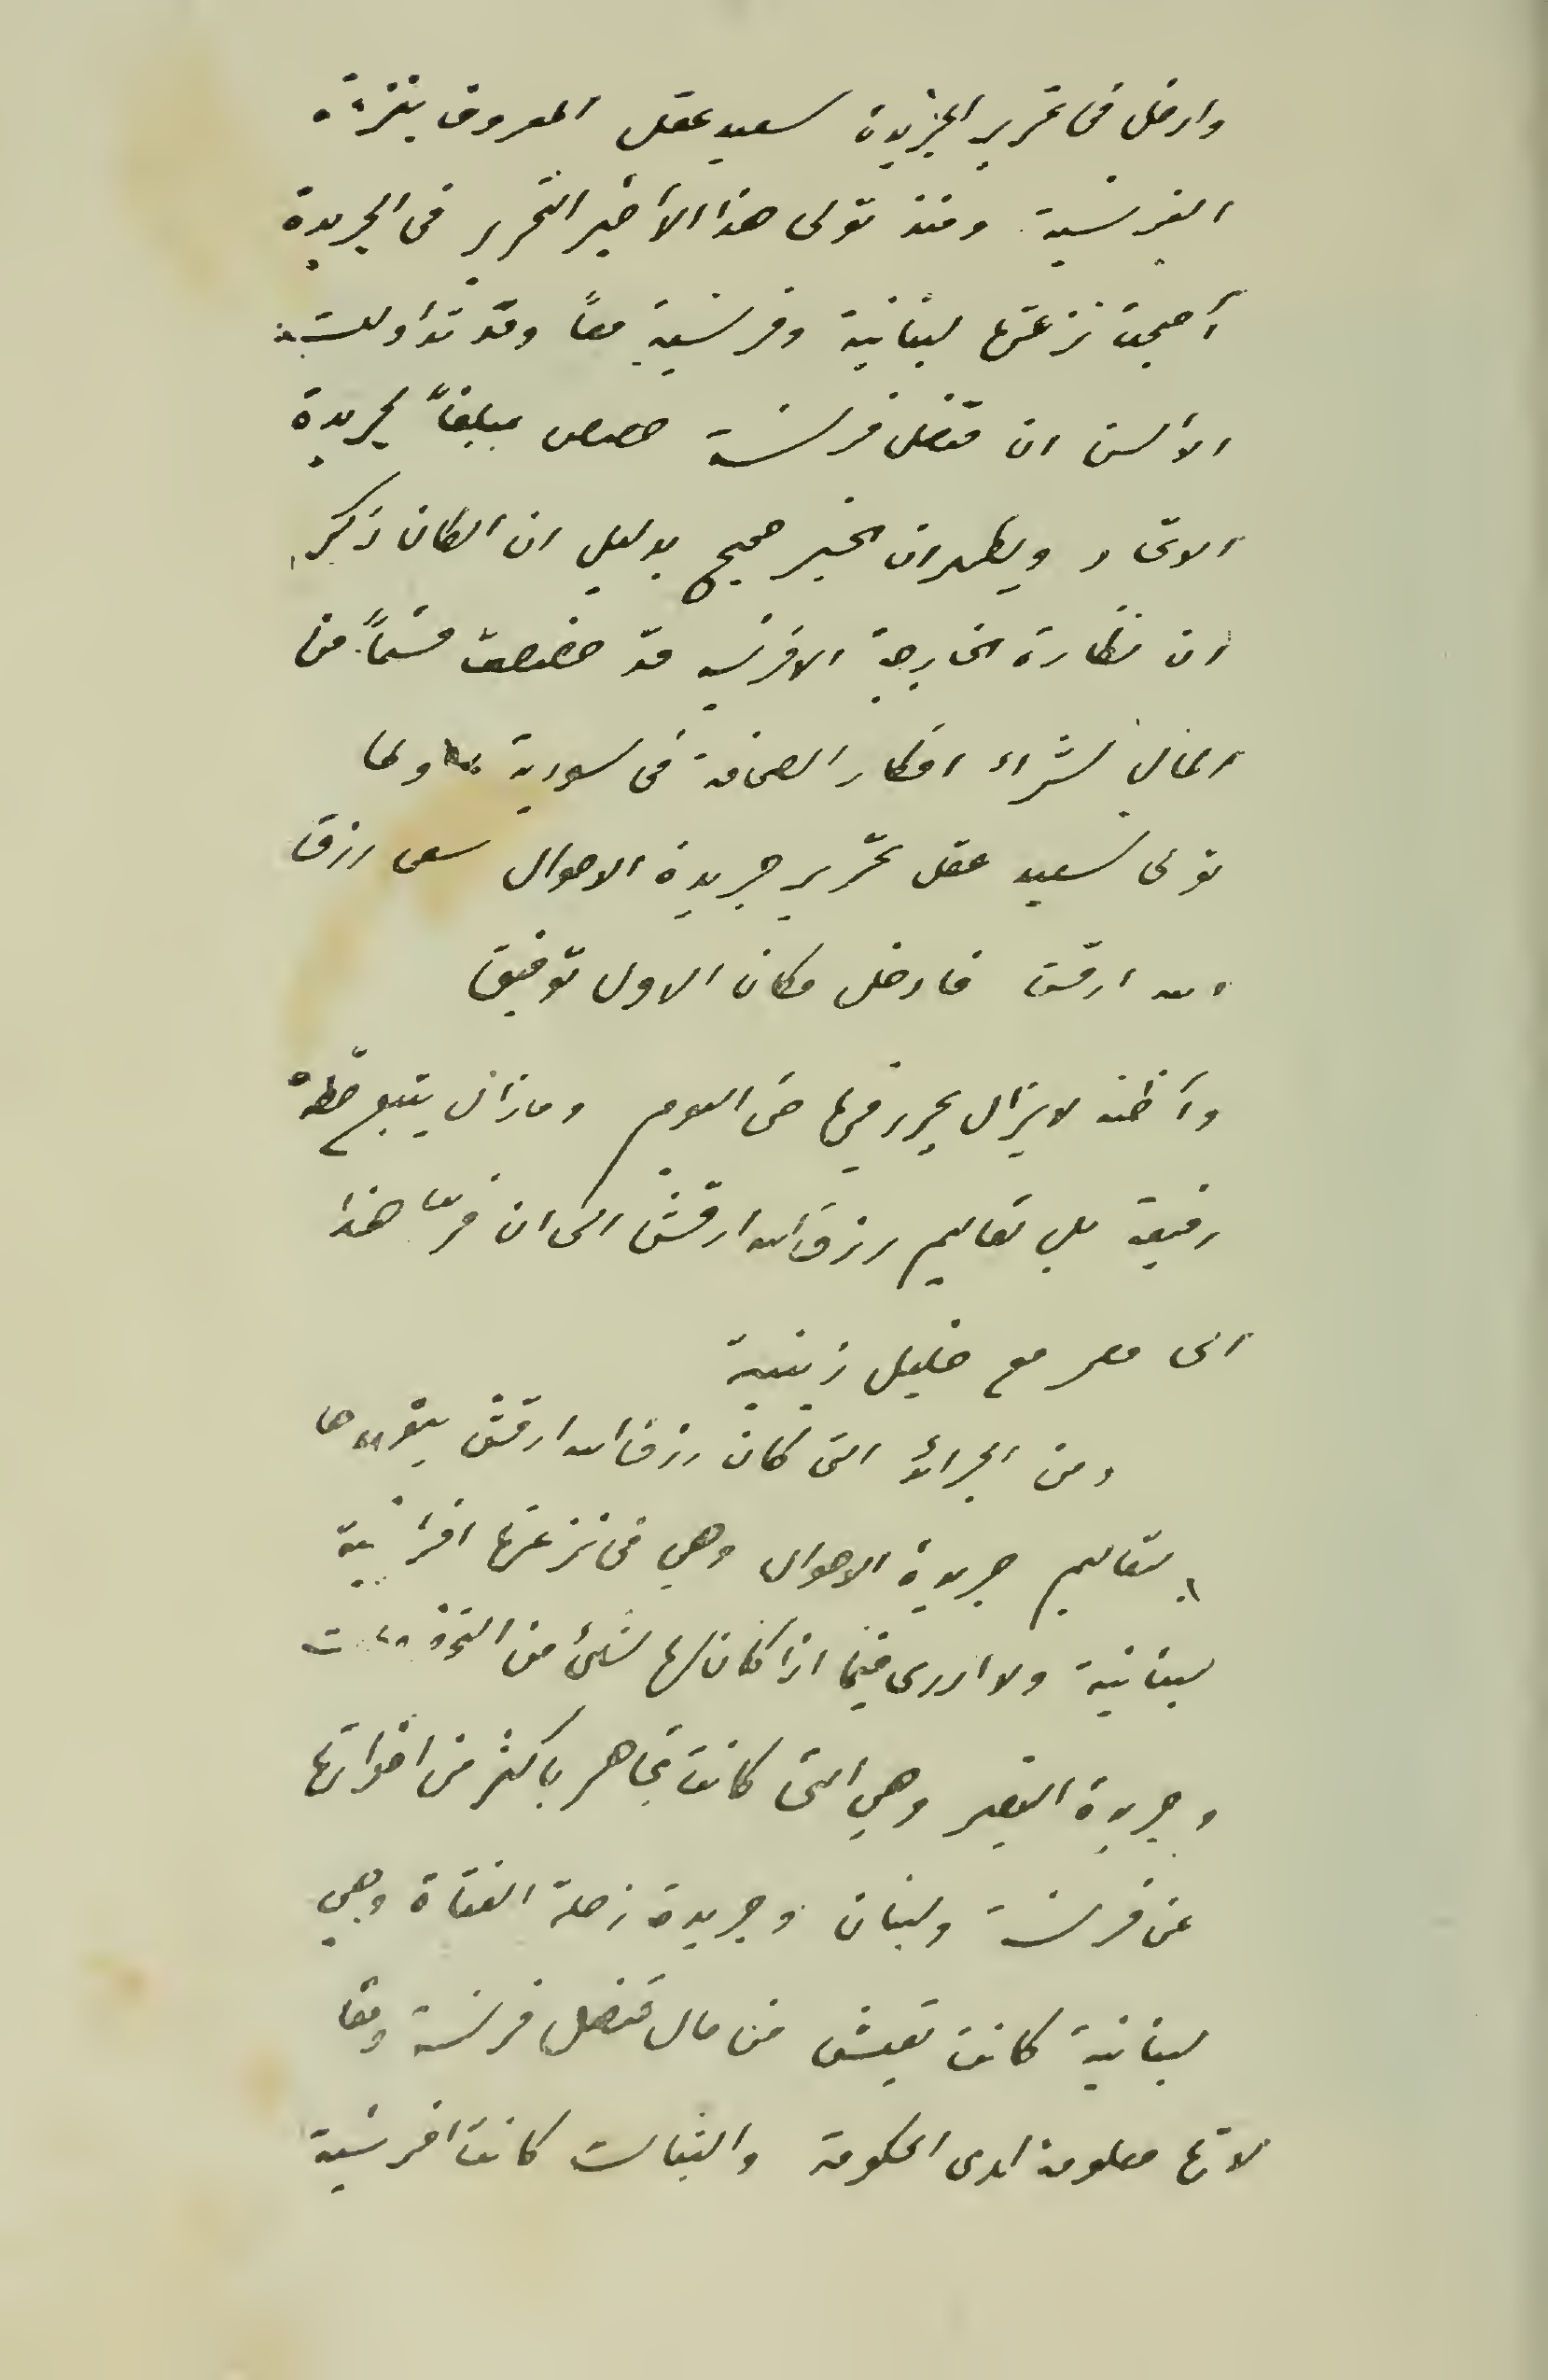 وادخل في تحرير الجريدة سعيد عقل المعروف بنزعته
الفرنسية ومنذ تولى هذا الأخير التحرير في الجريدة
أصبحت نزعتها لبنانية وفرنسية معاً وقد تداولت
الألسن ان قنصل فرنسة خصص مبلغاً لجريدة
الاتحاد ويظهر ان الخبر صحيح بدليل ان الطان ذكر
ان نظارة الخارجية الافرنسية قد خصصت قسماً من
المال لشراء افكار الصحافة في سورية ولما
تولى سعيد عقل تحرير جريدة الاحوال سعى رزق
الله ارقش فادخل مكان الاول توفيق
وأظنه لا يزال يحرر فيها حتى اليوم ومازال يتبع خطة
رفيقه بل تعاليم رزق الله ارقش الى ان فر هذا
الى مصر مع خليل زينية
ومن الجرائد التي كان رزق الله ارقش
بتعاليم جريدة الاحوال وهي في نزعتها افرنسية
لبنانية ولا ادري فيما اذا كان لها شيء من
وجريدة النصير وهي التي كانت تجاهر باكثر من اخواتها
عن فرنسة ولبنان وجريدة زحلة الفتاة وهي
لبنانية كانت تعيش من مال قنصل فرنسة
لانها معلومة لدى الحكومة والثبات كانت افرنسية